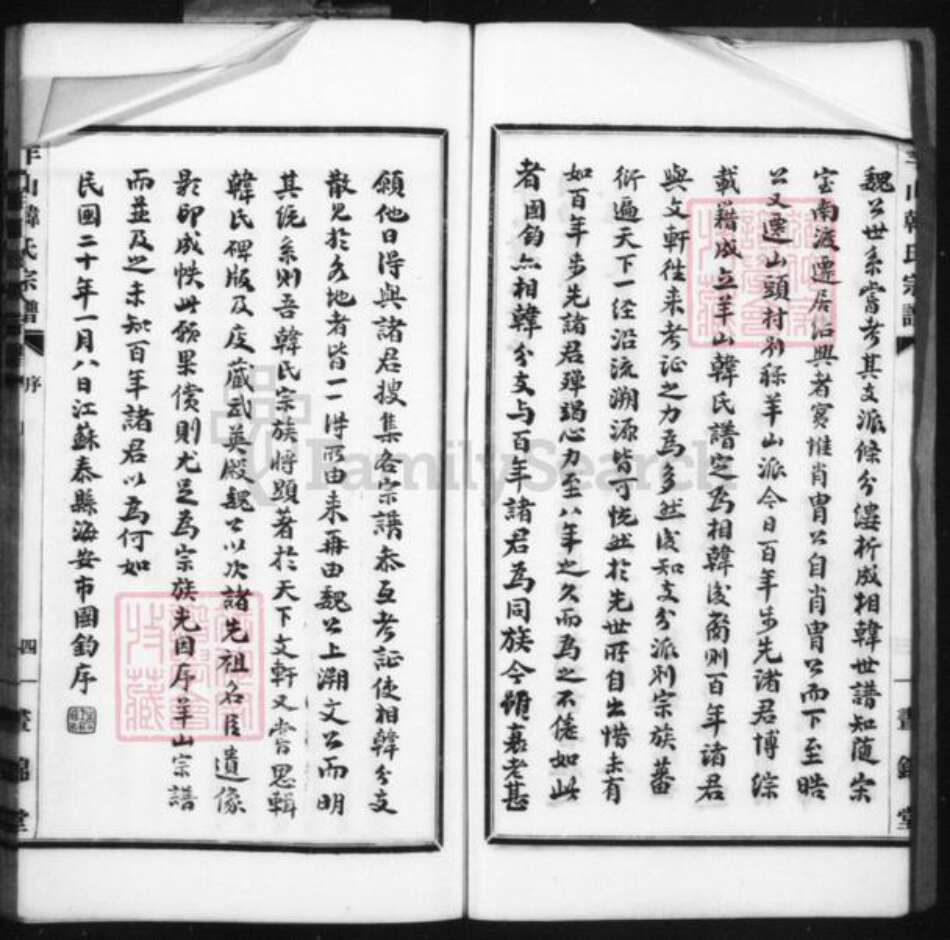 魏公世系嘗考其支派條分縷析成相韓世譜知隨宗
室南渡遷居紹興者實惟肖胄公自肖胄公而下至晧
公又遷山頭村別稱羊山派今日百年步先諸君博綜
載籍成立羊山韓氏譜定為相韓後裔則百年諸君
與文軒往來考证之力為多然後知支分派別宗族蕃
衍遍天下一經沿流溯源皆可恍然於先世所自出惜未有
如百年步先諸君殫竭心力至八年之久而為之不倦如此
者國鈞亦相韓分支与百年諸君為同族今雖衰老甚
願他日得與諸君搜集各宗譜参互考証使相韓分支
散見於各地者皆一一得所由来再由魏公上溯文公而明
其统系則吾韓氏宗族將顯著於天下文軒又嘗思輯
韓氏碑版及庋藏武英殿魏公以次諸先祖名臣遺像
影印成帙此願果償則尤足為宗族光因序羊山宗譜
而並及之未知百年諸君以為何如
民國二十年一月八日江蘇泰縣海安市國鈞序
羊山韓氏宗譜
序
四
晝錦堂
FamilySearch